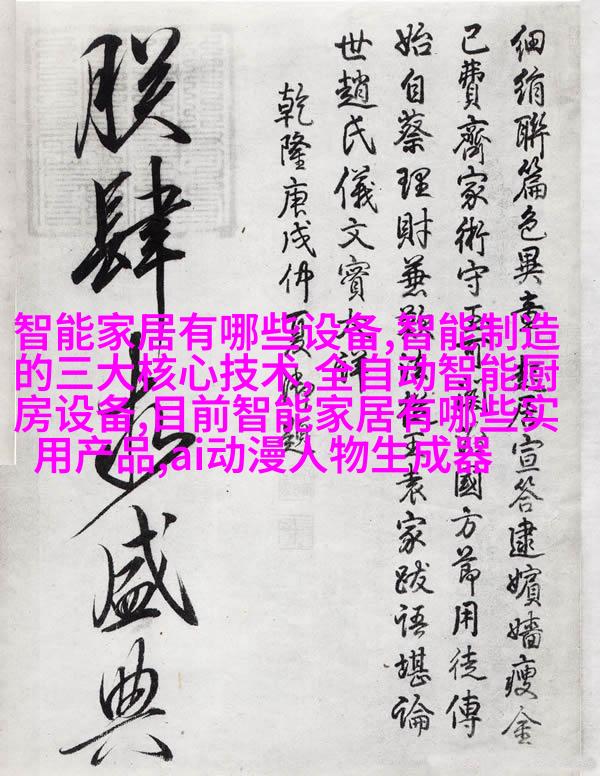 細絹聯篇色異居宣答逮嬪嬙瘦金
已費齊家術守王國方節用徒傳
始自蔡理財兼王袁家跋語堪論
世趙氏儀文實詳
乾隆庚戌仲夏題
朕肆盛典
智能家居有哪些设备,智能制造
的三大核心技术,全自动智能厨
房设备,目前智能家居有哪些实
用产品,ai动漫人物生成器